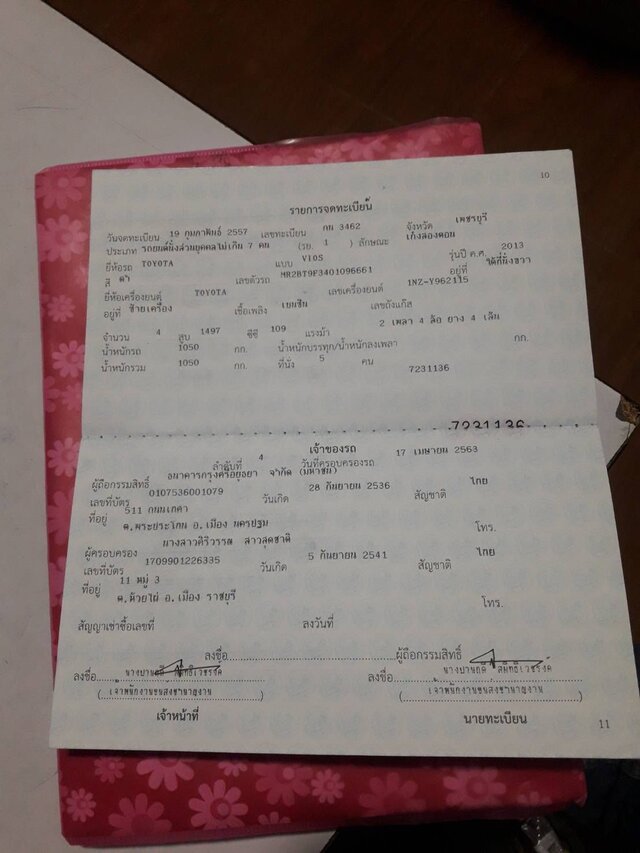 10
รายการจดทะเบียน
วันจดทะเบียน 19 กุมภาพันธ์ 2557 เลขทะเบียน กน 3462 จังหวัด เพชรบุรี
ประเภท รถยนต์นั่งส่วนบุคคลไม่เกิน 7 คน (รย. 1 ) ลักษณะ เก๋งสองตอน
ยี่ห้อรถ TOYOTA แบบ VIOS รุ่นปี ค.ศ. 2013
สี ดำ เลขตัวรถ MR2BT9F3401096661 อยู่ที่ ใต้ที่นั่งขวา
ยี่ห้อเครื่องยนต์ TOYOTA เลขเครื่องยนต์ 1NZ-Y962115
อยู่ที่ ซ้ายเครื่อง เชื้อเพลิง เบนซิน เลขถังแก๊ส
จำนวน 4 สูบ 1497 ซีซี 109 แรงม้า 2 เพลา 4 ล้อ ยาง 4 เส้น
น้ำหนักรถ 1050 กก. น้ำหนักบรรทุก/น้ำหนักลงเพลา กก.
น้ำหนักรวม 1050 กก. ที่นั่ง 5 คน
7231136
7231136
เจ้าของรถ
ลำดับที่ 4 วันที่ครอบครองรถ 17 เมษายน 2563
ผู้ถือกรรมสิทธิ์ ธนาคารกรุงศรีอยุธยา จำกัด (มหาชน)
เลขที่บัตร 0107536001079 วันเกิด 28 กันยายน 2536 สัญชาติ ไทย
ที่อยู่ 511 ถนนเทศา
ต.พระประโทน อ.เมือง นครปฐม โทร.
ผู้ครอบครอง นางสาวศิริวรรณ สาวสุดชาติ
เลขที่บัตร 1709901226335 วันเกิด 5 กันยายน 2541 สัญชาติ ไทย
ที่อยู่ 11 หมู่ 3
ต.ห้วยไผ่ อ.เมือง ราชบุรี โทร.
สัญญาเช่าซื้อเลขที่ ลงวันที่
ลงชื่อ ผู้ถือกรรมสิทธิ์
ลงชื่อ ลงชื่อ
(เจ้าพนักงานขนส่งชำนาญงาน) (เจ้าพนักงานขนส่งชำนาญงาน)
เจ้าหน้าที่ นายทะเบียน
11